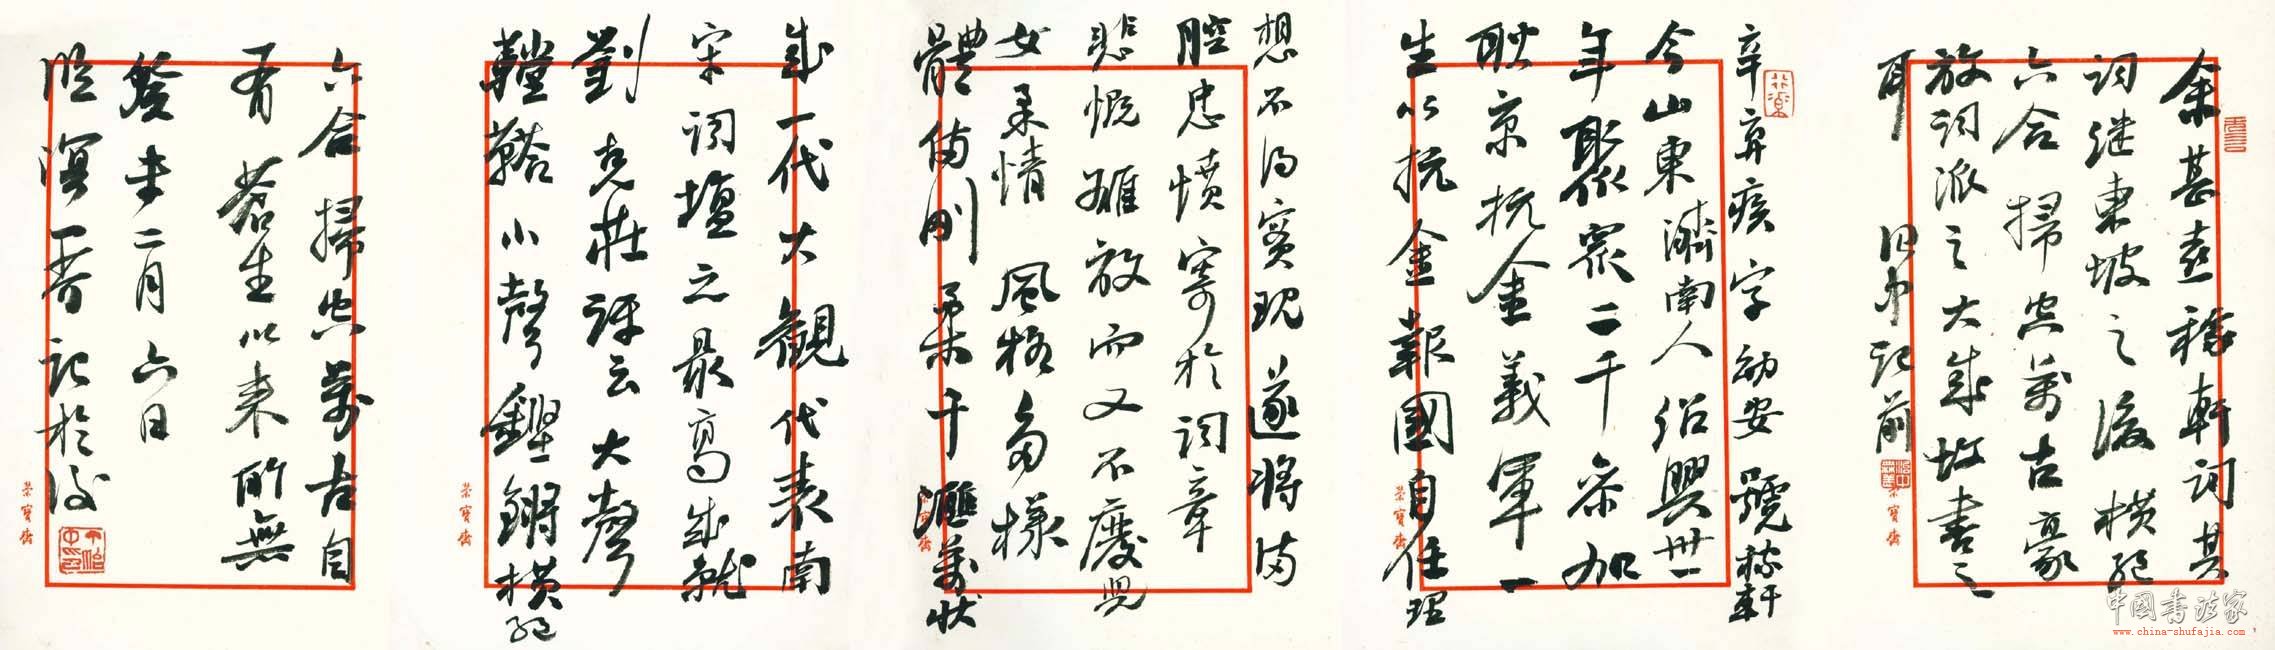 余甚喜稼軒词其
词继東坡之後横絕
六合掃空萬古豪
放词派之大成故書之
耳
记前
辛棄疾字幼安號稼軒
今山東濟南人绍興卅一
年聚眾二千參加
耿京抗金義軍一
生以抗金報國自任理
想不得實現遂將满
腔忠愤寄於词章
悲慨雄放而又不廢兒
女柔情風格多樣
體備剛柔千滙萬狀
成一代大觀代表南
宋词壇之最高成就
劉克莊评云大聲
鞺鞳小聲鏗鏘横絕
六合掃空萬古自
有蒼生以來所無
癸未二月六日
臨溟一春记於後
榮寶齋
榮寶齋
榮寶齋
榮寶齋
榮寶齋
中國書法家
www.china-shufajia.com